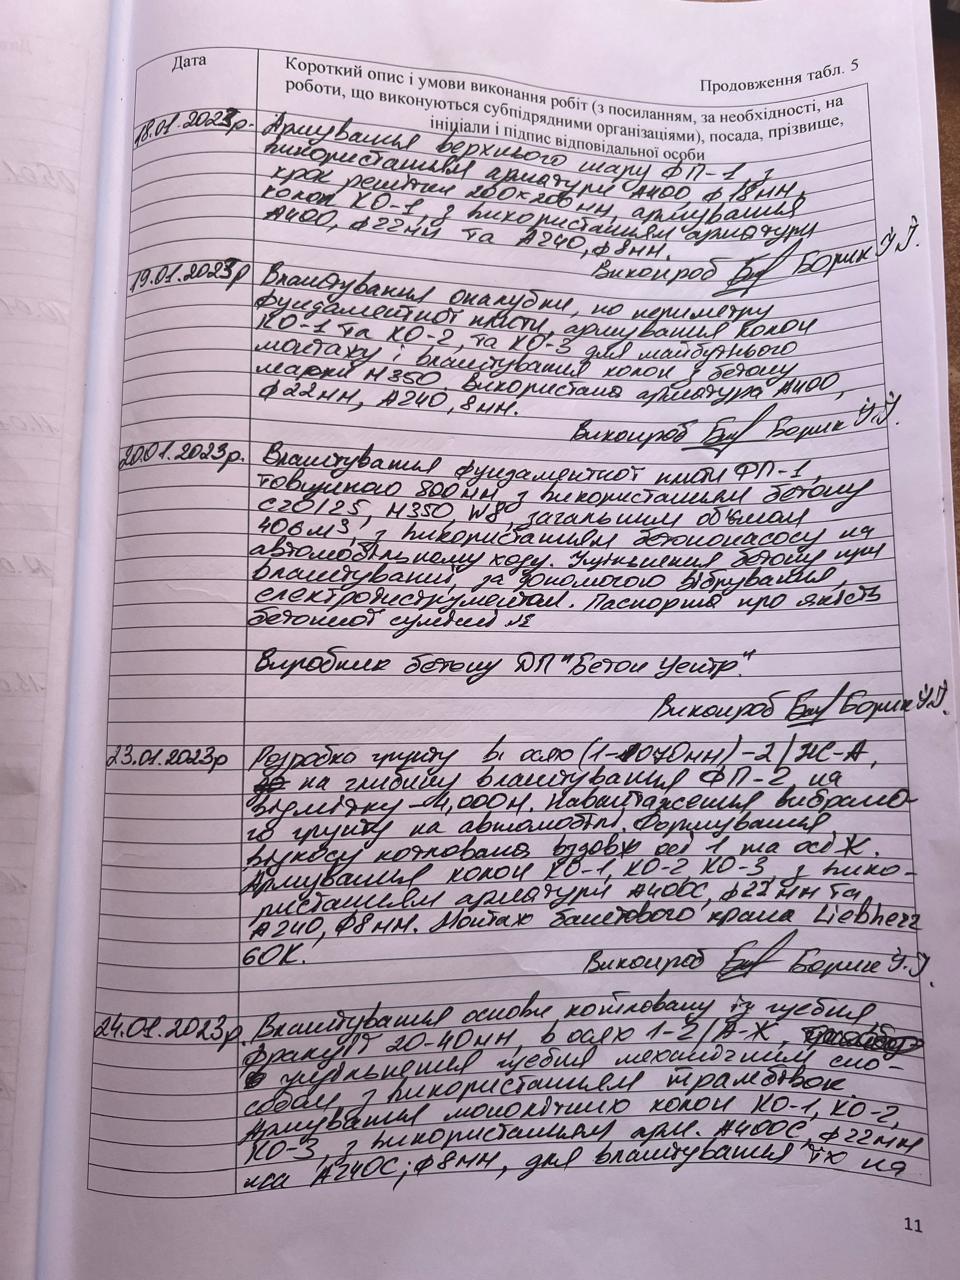 Продовження табл. 5
Дата
Короткий опис і умови виконання робіт (з посиланням, за необхідності, на
роботи, що виконуються субпідрядними організаціями), посада, прізвище,
ініціали і підпис відповідальної особи
18.01.2023р. Армування верхнього шару ФП-1, з
використанням арматури А400 ф18мм,
крок решітки 200×200мм, армування
колон КО-1, з використанням арматури
А400, ф22мм та А240, ф8мм.
Виконроб Борик Й.Й.
19.01.2023р Влаштування опалубки, по периметру
фундаментної плити, армування колон
КО-1 та КО-2, та КО-3 для майбутнього
монтажу і влаштування колон з бетону
марки М350. Використано арматура А400,
ф22мм, А240, 8мм.
Виконроб Борик Й.Й.
20.01.2023р. Влаштування фундаментної плити ФП-1,
товщиною 800мм з використанням бетону
С20/25, М350, W8, загальним об'ємом
406м3, з використанням бетононасосу на
автомобільному ходу. Ущільнення бетону при
влаштуванні, за допомогою вібрування,
електроінструментом. Паспорт про якість
бетонної суміші №
Виробник бетону ДП "Бетон Центр"
Виконроб Борик Й.Й.
23.01.2023р Розробка грунту в осях (1-1070мм)-2/Ж-А,
на глибину влаштування ФП-2 на
відмітку -4,000м. Навантаження вибрано-
го грунту на автомобілі. Формування
відкосу котлована вздовж осі 1 та осі Ж.
Армування колон КО-1, КО-2 КО-3, з вико-
ристанням арматури А400С, ф22мм та
А240, ф8мм. Монтаж баштового крана Liebherr
60К.
Виконроб Борик Й.Й.
24.01.2023р. Влаштування основи котловану із щебня
фракції 20-40мм, в осях 1-2/А-Ж,
ущільнення щебня механічним спо-
собом з використанням трамбовок.
Армування монолітних колон КО-1, КО-2,
КО-3, з використанням арм. А400С, ф22мм
та А240С; ф8мм, для влаштування їх на
11